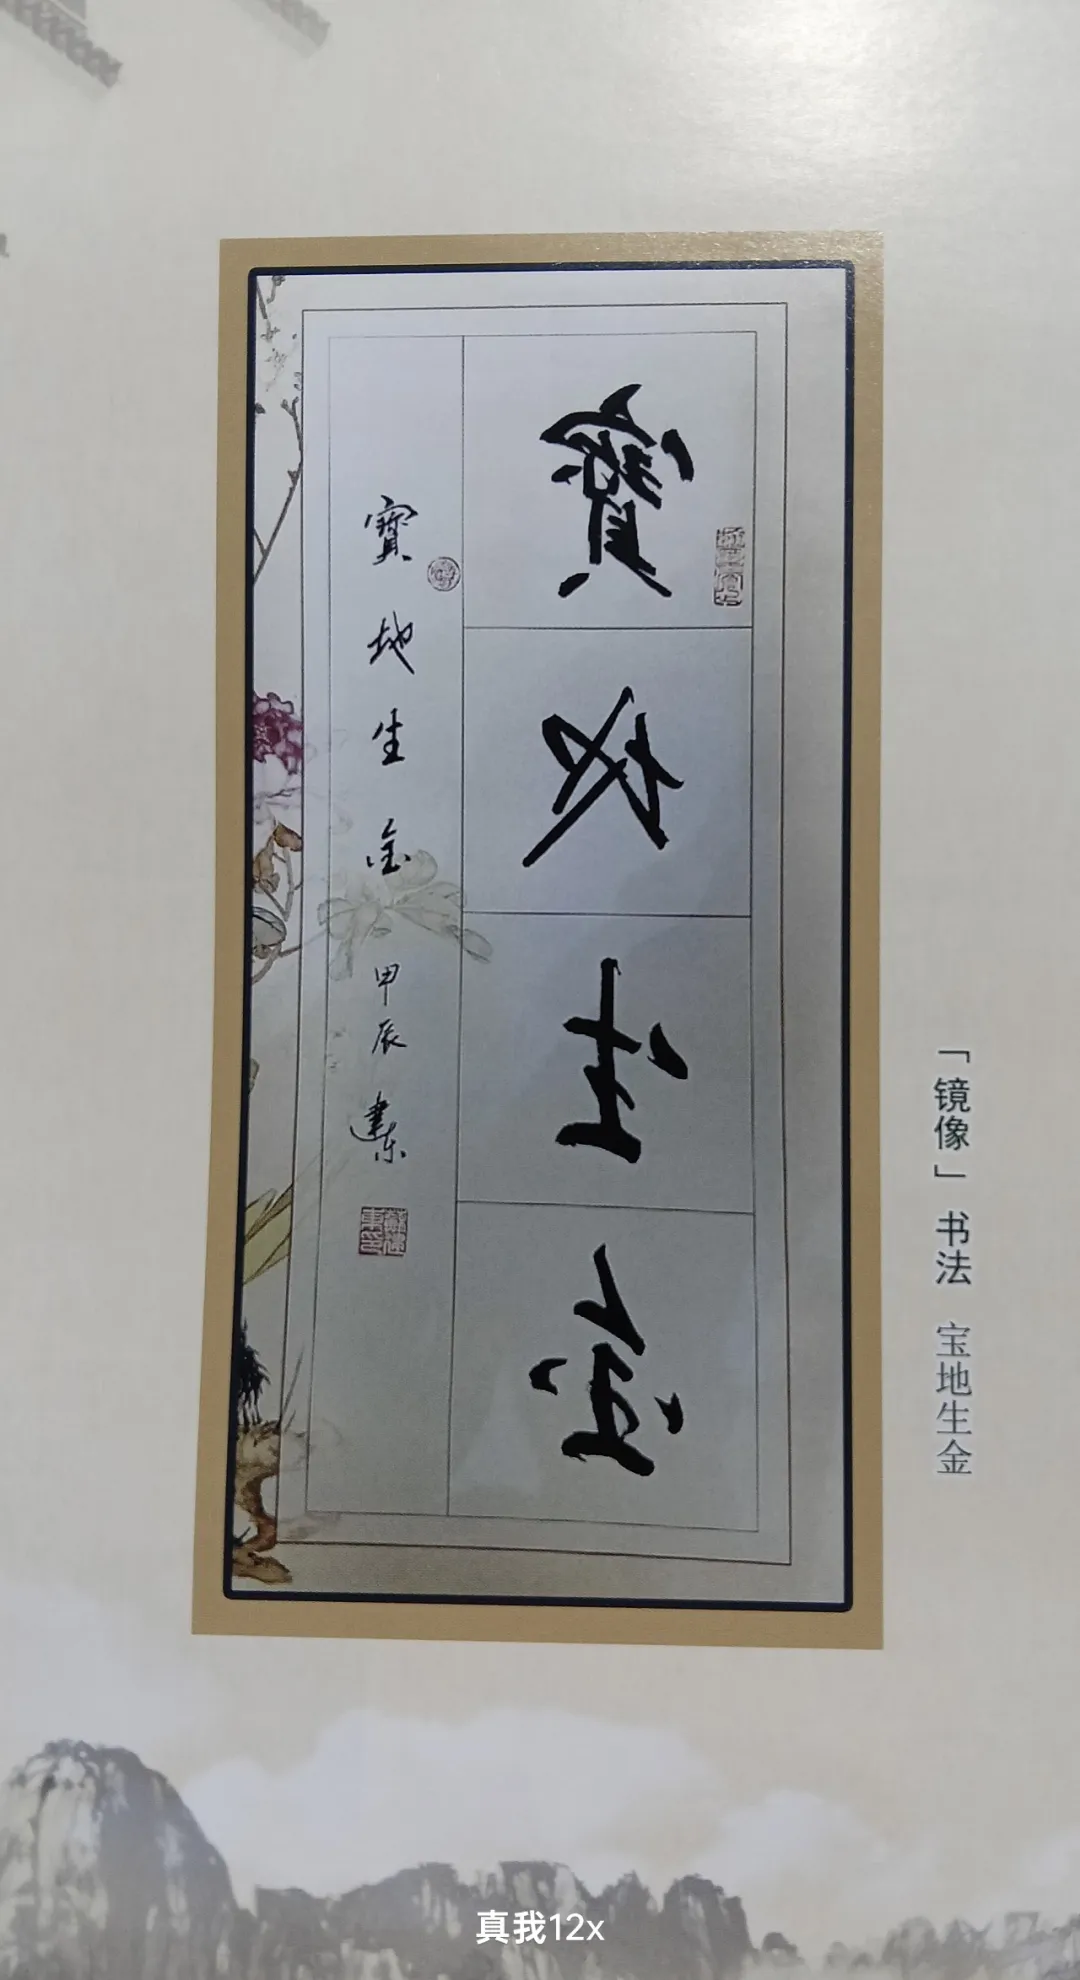 「镜像」书法 宝地生金
寶地生金
寶地生金 甲辰 建东
真我12x